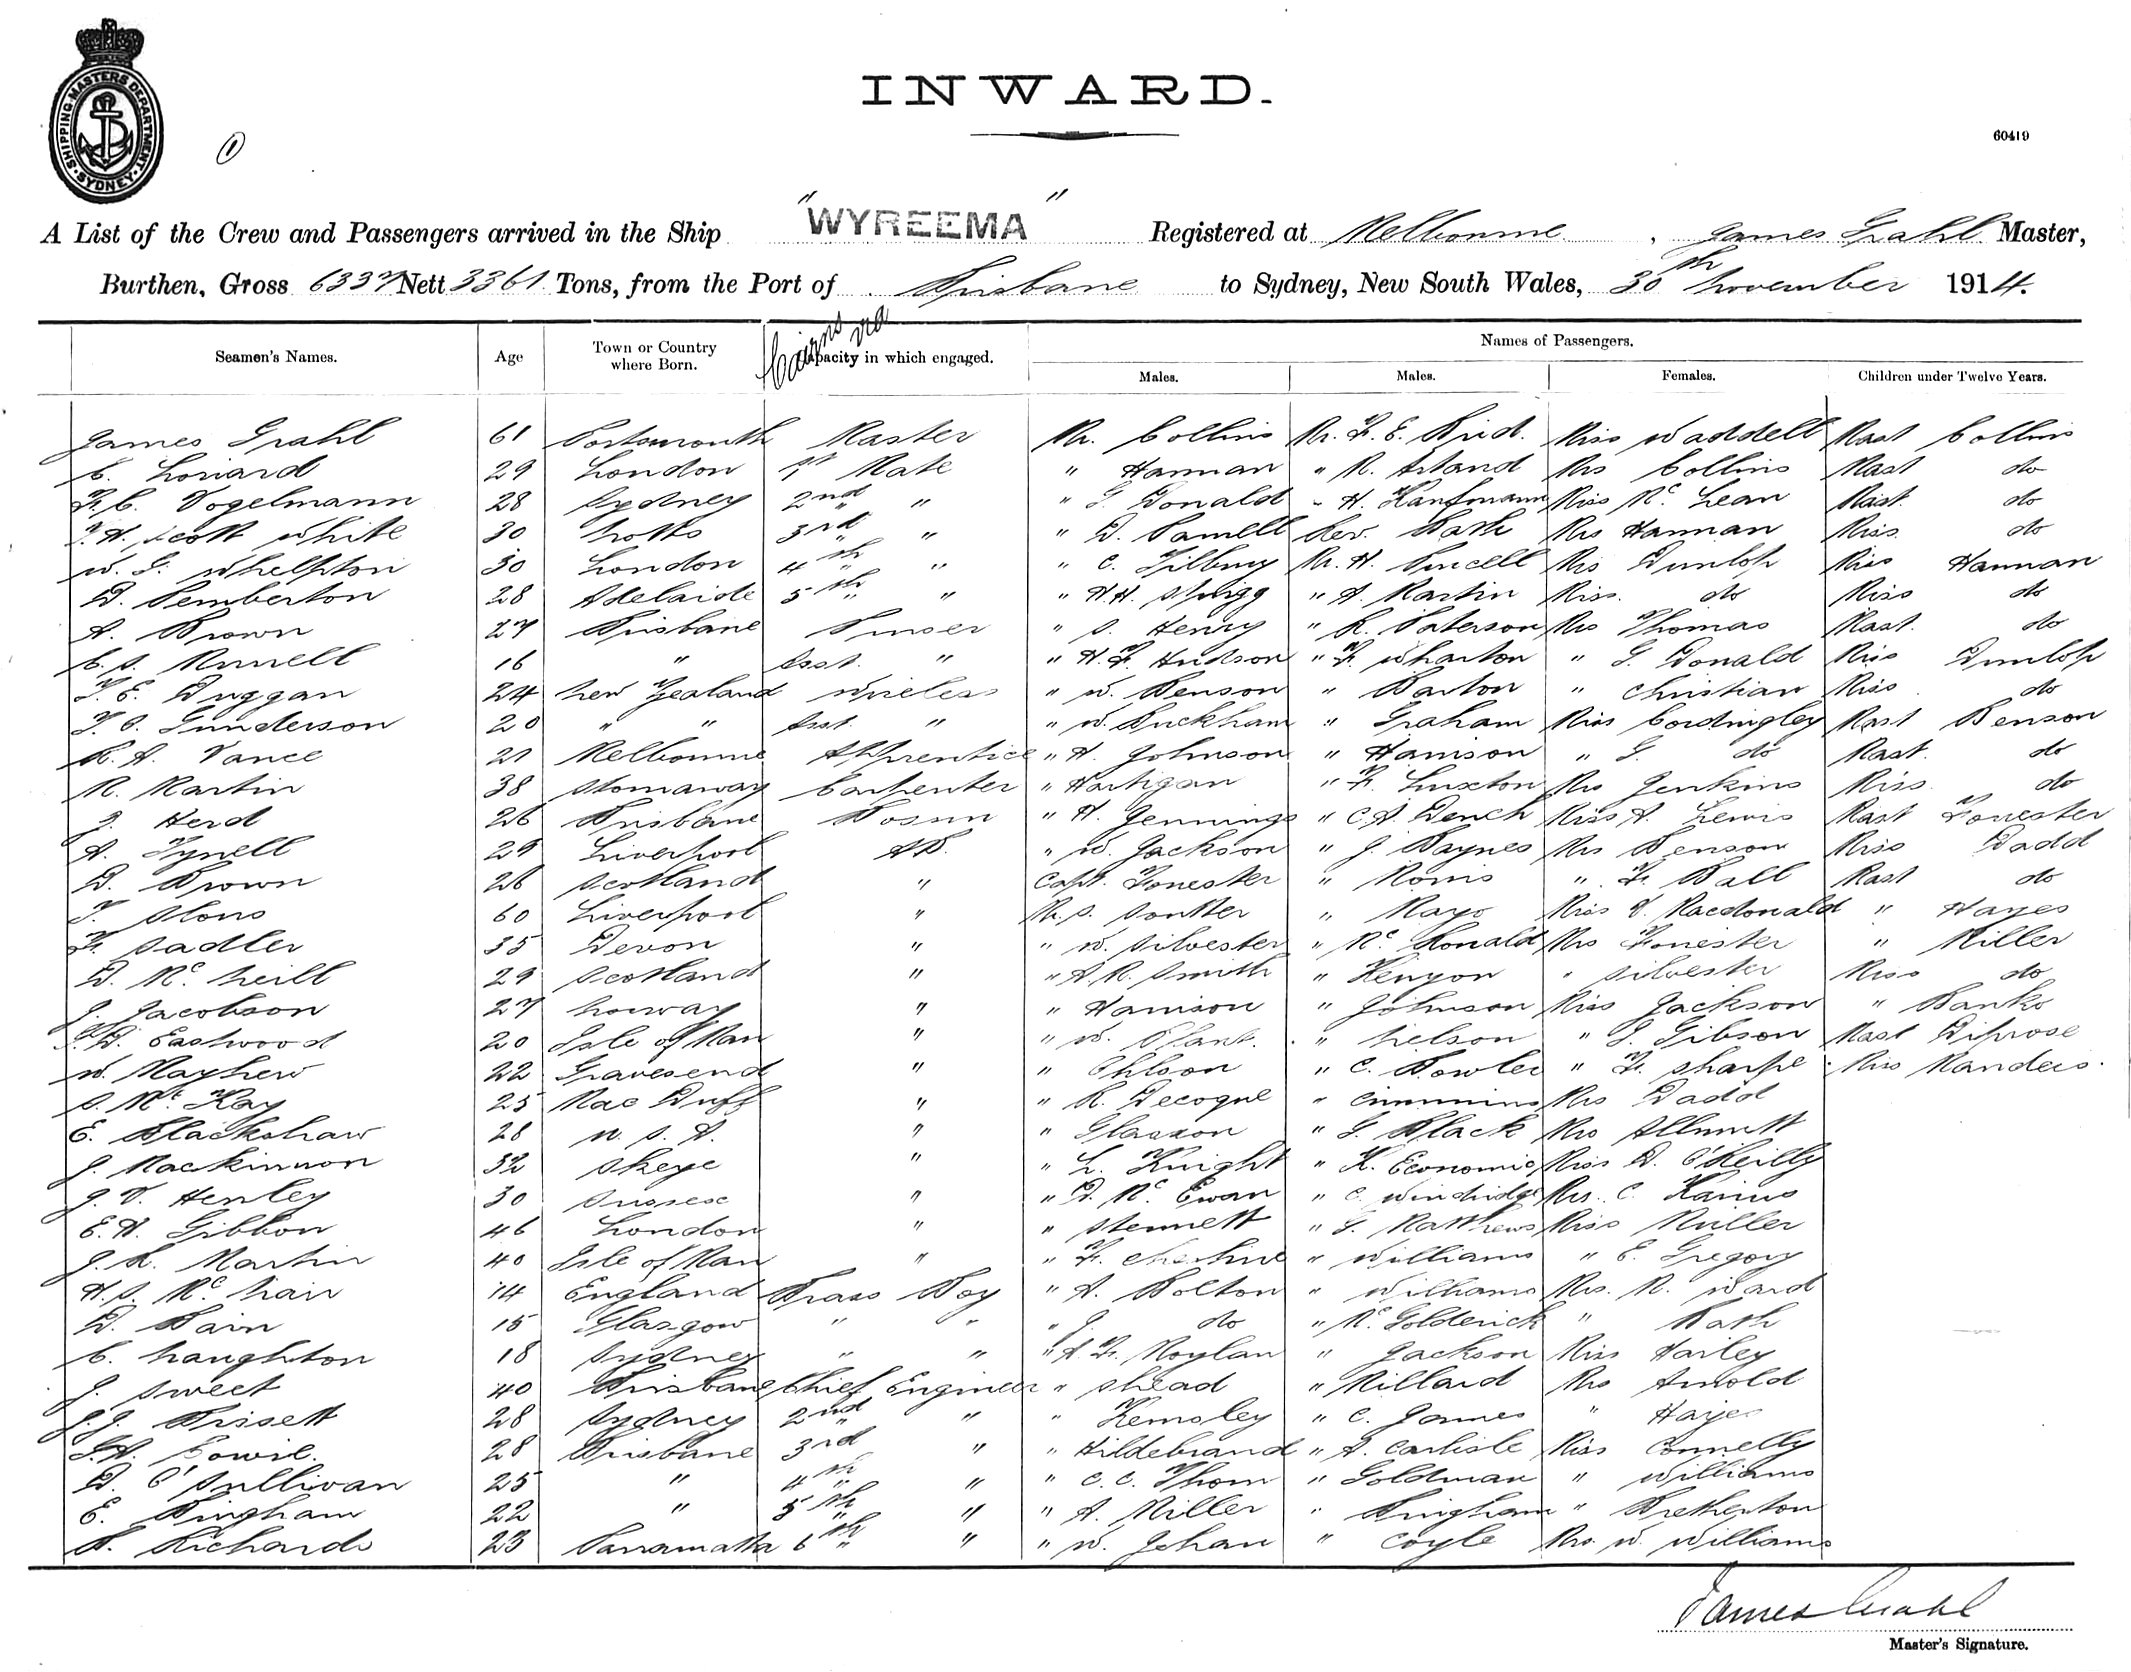 SHIPPING MASTERS DEPARTMENT · SYDNEY ·
1
INWARD.
60419
A List of the Crew and Passengers arrived in the Ship "WYREEMA" Registered at Melbourne, James Grahl Master,
Burthen, Gross 6337 Nett 3361 Tons, from the Port of Brisbane to Sydney, New South Wales, 30th November 1914.
Cairns via
Seamen's Names. Age Town or Country where Born. Capacity in which engaged. Names of Passengers.
Males. Males. Females. Children under Twelve Years.
James Grahl 61 Portsmouth Master Mr. Collins Mr. F. E. Bird. Miss Waddell Mast Collins
29 London 1st Mate " Hannan " Mrs Collins Mast do
F. C. Vogelmann 28 Sydney 2nd " " G Donald " H. Kaufmann Miss Mc Lean Mast. do
Scott White 30 Notts 3rd " " D. Parnell Rev. Bath Mrs Hannan Miss do
W. G. Whelpton 30 London 4th " " C. Tilbury Mr. H. Purcell Mrs Dunlop Miss Hannan
D. Pemberton 28 Adelaide 5th " " H. H. Sprigg " A. Martin Miss. do Miss do
A. Brown 27 Brisbane Purser " S. Henry " R. Paterson Mrs Thomas Mast. do
16 " Asst. " " H. F. Hudson " F. Wharton " G. Donald Miss Dunlop
T. E. Duggan 24 New Zealand Wireless " W. Benson " Barton " Christian Miss do
T. O. Gunderson 20 " " Asst. " " W. Duckham " Graham Miss Cordingley Mast Benson
R. A. Vance 21 Melbourne Apprentice " H. Johnson " Harrison " G. do Mast. do
M. Martin 38 Stornaway Carpenter " Hartigan " F. Luxton Mrs Jenkins Miss do
J. Herd 26 Brisbane Bosun " H. Jennings " C. A. Dench Miss A. Lewis Mast Forrester
A. Tyrell 29 Liverpool AB. " W. Jackson " J. Baynes Mrs Benson Miss Dadd
D. Brown 26 Scotland " Capt. Forrester " Morris " F. Ball Mast do
60 Liverpool " Mr. S. Soutter " Mayo Miss V. Macdonald " Hayes
F. Sadler 35 Devon " " W. Silvester " Mc Donald Mrs Forrester " Miller
D. Mc Neill 29 Scotland " " A. R. Smith " Kenyon " Silvester Miss do
J. Jacobson 27 Norway " " Harrison " Johnson Miss Jackson " Banks
Eastwood 20 Isle of Man " " W. Plant. " Nelson " G. Gibson Mast Diprose
W. Mayhew 22 Gravesend " " Ohlson " C. Fowler " F. Sharpe Miss Manders.
S. Mc Kay 25 Mac Duff " " R. Decoque " Cummins Mrs Dadd
E. Blackshaw 28 U. S. A. " " Glasson " G. Black Mrs Allnutt
J. Mackinnon 32 Skeye " " L. Knight " K. Economic Miss D. O'Reilly
J. V. Henley 30 Sussex " " D. Mc Ewan " C. Windridge Mrs. C. Kairns
E. H. Gibbon 46 London " " Stennett " G. Matthews Miss Miller
J. R. Martin 40 Isle of Man " " F. Cheshire " Williams " E. Gregory
H. S. Mc Nair 14 England Brass Boy " A. Bolton " Williams Mrs. M. Ward
D. Bain 15 Glasgow " " " J. do " Mc Golderick " Bath
C. Naughton 18 Sydney " " " A. F. Moylan " Jackson Miss Harley
J. Sweet 40 Brisbane Chief Engineer " Shead " Millard Mrs Arnold
J. J. Brisett 28 Sydney 2nd " " Kemsley " C. James " Hayes
28 Brisbane 3rd " " Hildebrand " A. Carlisle Miss Connelly
D. O'Sullivan 25 " 4th " " C. C. Thom " Goldman " Williams
E. Bingham 22 " 5th " " A. Miller " Bingham " Bretherton
Richards 23 Parramatta 6th " " W. Gehan " Coyle Mrs. W. Williams
James Grahl
Master's Signature.